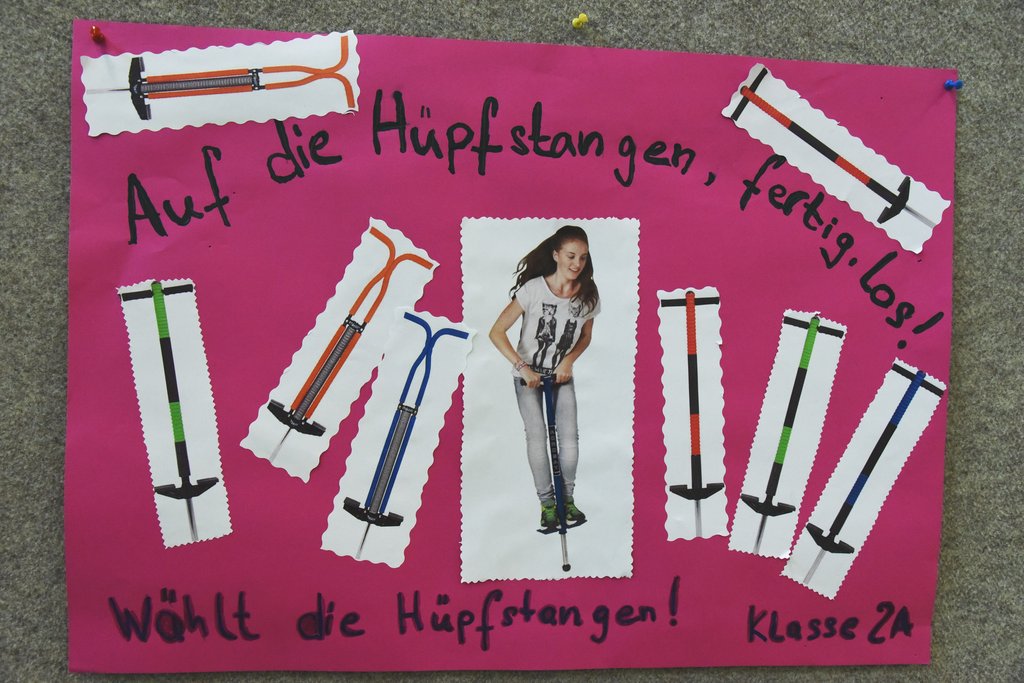 Auf die Hüpfstangen, fertig, los!
Wählt die Hüpfstangen!
Klasse 2A